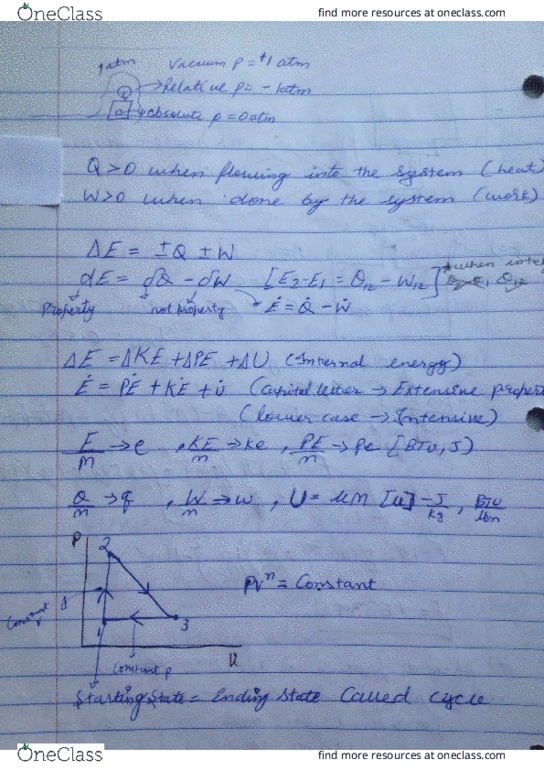 OneClass
find more resources at oneclass.com
1atm
Vacuum P = +1 atm
Relative P = -1atm
absolute p = 0 atm
Q>0 when flowing into the system (heat)
W>0 when done by the system (work)
ΔE = ±Q ±W
dE = δQ - δW [E2-E1 = Q12 - W12] when
property not property Ė = Q̇ - Ẇ
ΔE = ΔKE + ΔPE + ΔU (Internal energy)
Ė = PĖ + KĖ + U̇ (Capital letter → Extensive propert
(lower case → Intensive)
E/m → e , KE/m → ke , PE/m → pe [BTU, J]
Q/m → q , W/m → w , U = um [u] - J/kg , BTU/lbm
P
2
PVⁿ = Constant
Constant
1
3
Constant p
Starting State = Ending State Called cycle
OneClass
find more resources at oneclass.com